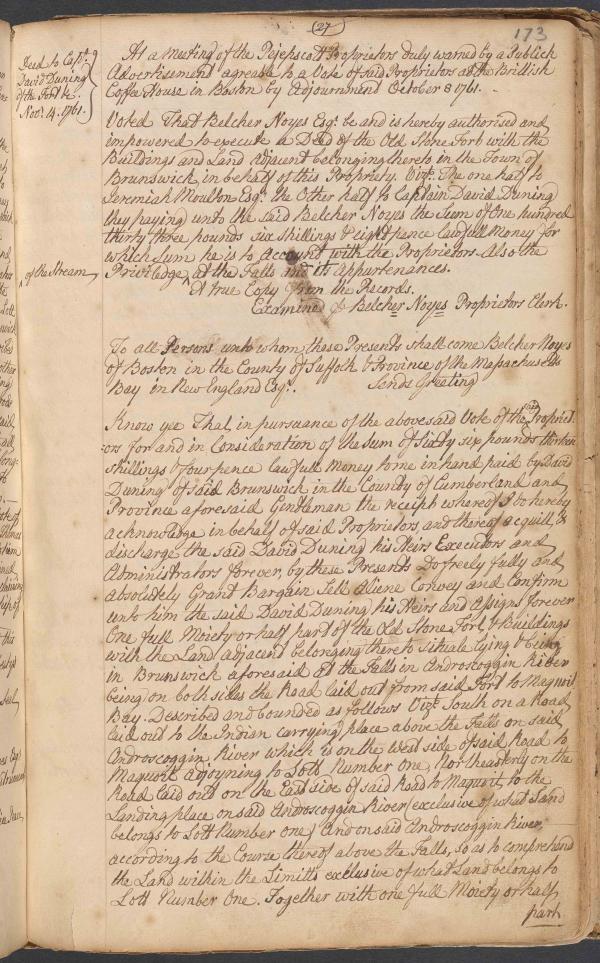 (27)
173
Deed to Capt.
David Duning
of the Fort &c.
Novr. 14. 1761.
At a meeting of the Pejepscot Proprietors duly warned by a Publick
Advertisement agreable to a Vote of said Proprietors at the Brittish
Coffee House in Boston by adjournment October 8 1761.
Voted That Belcher Noyes Esqr. be and is hereby authorised and
impowered to execute a Deed of the Old Stone Fort with the
Buildings and Land adjacent belonging thereto in the Town of
Brunswick in behalf of this Propriety. Vizt. The one half to
Jeremiah Moulton Esqr. the Other half to Captain David Duning
they paying unto the said Belcher Noyes the Sum of One hundred
thirty three pounds six shillings & eight pence Lawfull Money for
which Sum he is to account with the Proprietors. Also the
Priviladge ^ at the Falls and its appurtenances.
^ of the Stream
A true Copy from the Records.
Examined P Belcher Noyes Proprietors Clerk.
To all Persons unto whom these Presents shall come Belcher Noyes
of Boston in the County of Suffolk & Province of the Massachusetts
Bay in New England Esqr. Sends Greeting
Know yee That in pursuance of the abovesaid Vote of the said Propriet-
-ors for and in Consideration of the Sum of Sixty six pounds thirteen
shillings & four pence Lawfull Money to me in hand paid by David
Duning of said Brunswick in the County of Cumberland and
Province aforesaid Gentleman the receipt whereof I do hereby
acknowladge in behalf of said Proprietors and thereof acquitt &
discharge the said David Duning his Heirs Executors and
Administrators forever, by these Presents Do freely fully and
absolutely Grant Bargain Sell Aliene Convey and Confirm
unto him the said David Duning his Heirs and Assigns forever
One full Moiety or half part of the Old Stone Fort & Buildings
with the Land adjacent belonging thereto situate lying & being
in Brunswick aforesaid at the Falls in Androscoggin River
being on both sides the Road laid out from said Fort to Maquoit
Bay. Described and bounded as follows Vizt. South on a Road
laid out to the Indian carrying place above the Falls on said
Androscoggin River which is on the West side of said Road to
Maquoit adjoyning to Lott Number one, Northeasterly on the
Road laid out on the East side of said Road to Maquoit to the
Landing place on said Androscoggin River (exclusive of what Land
belongs to Lott Number one) And on said Androscoggin River,
according to the Course thereof above the Falls, so as to comprehend
the Land within the Limitts exclusive of what Land belongs to
Lott Number One. Together with one full Moiety or half
part